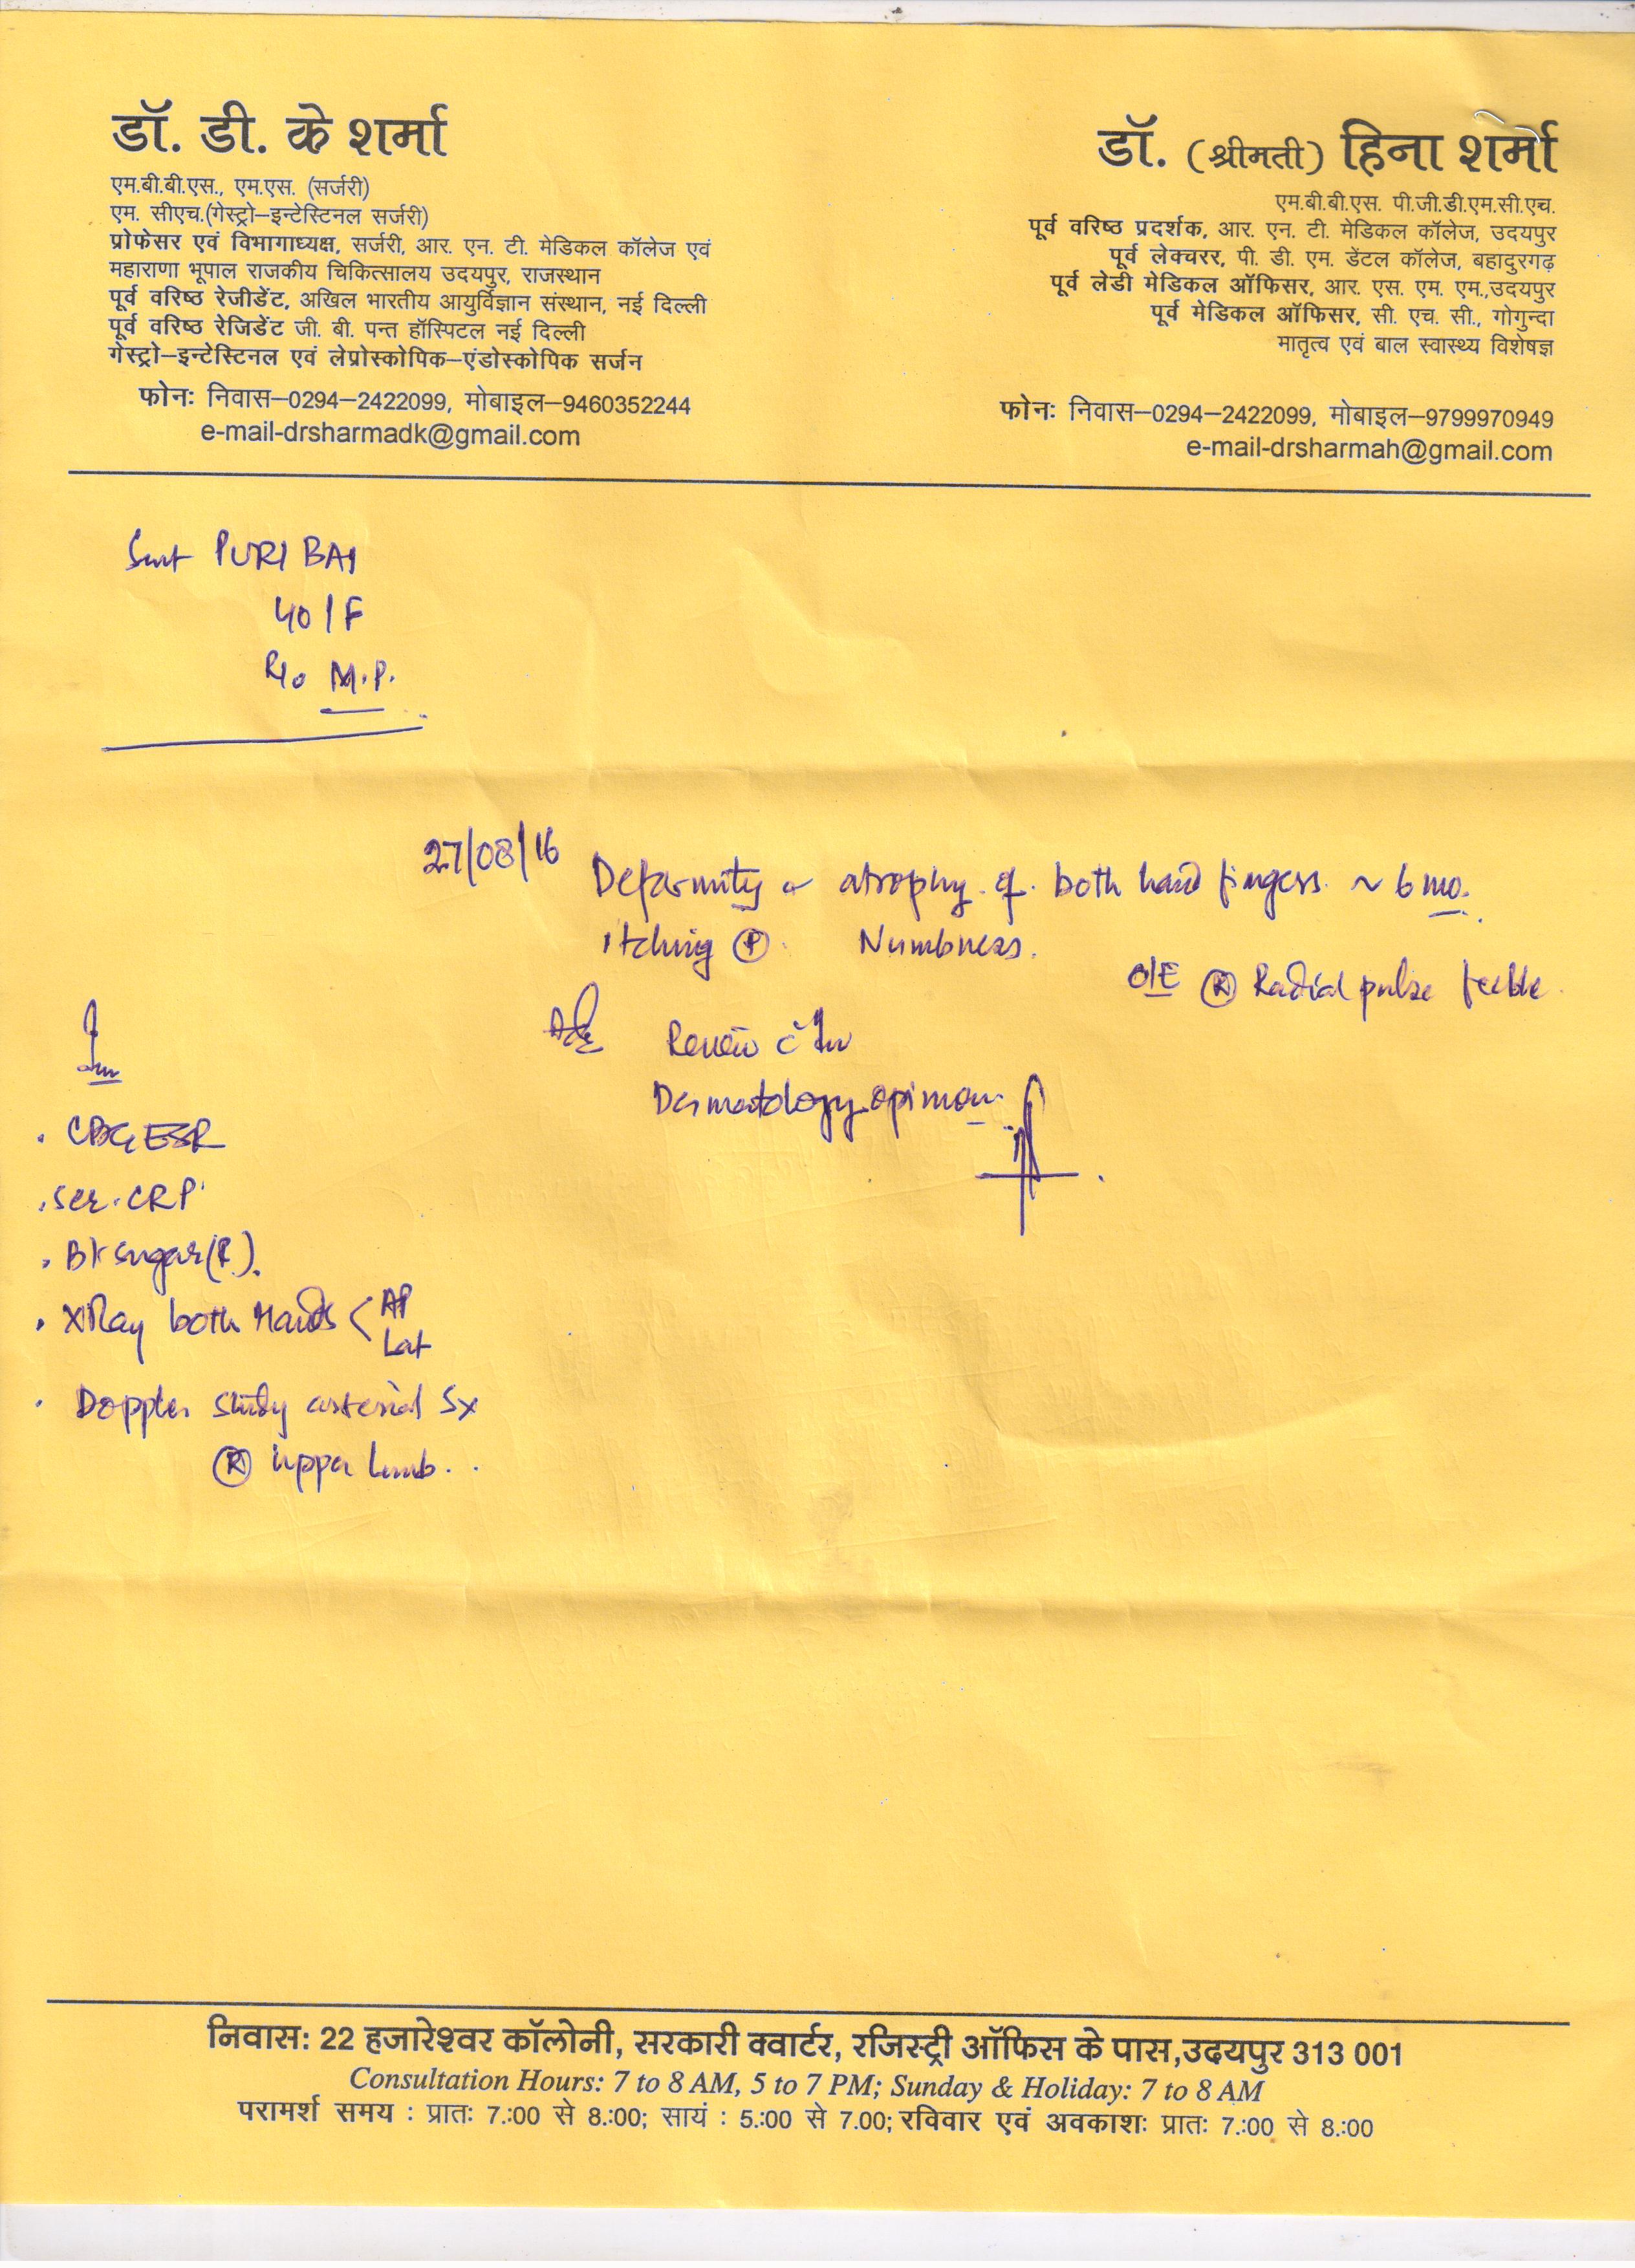 डॉ. डी. के शर्मा
एम.बी.बी.एस., एम.एस. (सर्जरी)
एम. सीएच.(गेस्ट्रो–इन्टेस्टिनल सर्जरी)
प्रोफेसर एवं विभागाध्यक्ष, सर्जरी, आर. एन. टी. मेडिकल कॉलेज एवं
महाराणा भूपाल राजकीय चिकित्सालय उदयपुर, राजस्थान
पूर्व वरिष्ठ रेजीडेंट, अखिल भारतीय आयुर्विज्ञान संस्थान, नई दिल्ली
पूर्व वरिष्ठ रेजिडेंट जी. बी. पन्त हॉस्पिटल नई दिल्ली
गेस्ट्रो–इन्टेस्टिनल एवं लेप्रोस्कोपिक–एंडोस्कोपिक सर्जन
फोनः निवास–0294–2422099, मोबाइल–9460352244
e-mail-drsharmadk@gmail.com
डॉ. (श्रीमती) हिना शर्मा
एम.बी.बी.एस. पी.जी.डी.एम.सी.एच.
पूर्व वरिष्ठ प्रदर्शक, आर. एन. टी. मेडिकल कॉलेज, उदयपुर
पूर्व लेक्चरर, पी. डी. एम. डेंटल कॉलेज, बहादुरगढ़
पूर्व लेडी मेडिकल ऑफिसर, आर. एस. एम. एम.,उदयपुर
पूर्व मेडिकल ऑफिसर, सी. एच. सी., गोगुन्दा
मातृत्व एवं बाल स्वास्थ्य विशेषज्ञ
फोनः निवास–0294–2422099, मोबाइल–9799970949
e-mail-drsharmah@gmail.com
Smt PURI BAI
40/F
R/o M.P.
27/08/16 Deformity & atrophy of both hand fingers ~ 6 mo.
Itching (P) Numbness.
O/E (R) Radial pulse feeble.
Adv Review c̄ Inv
Dermatology opinion
Inv
. CBC ESR
. Ser. CRP
. Bl sugar (R).
. XRay both Hands < AP
Lat
. Doppler study arterial Sx
(R) upper limb.
निवास: 22 हजारेश्वर कॉलोनी, सरकारी क्वार्टर, रजिस्ट्री ऑफिस के पास,उदयपुर 313 001
Consultation Hours: 7 to 8 AM, 5 to 7 PM; Sunday & Holiday: 7 to 8 AM
परामर्श समय : प्रातः 7.:00 से 8.:00; सायं : 5.:00 से 7.00; रविवार एवं अवकाशः प्रातः 7.:00 से 8.:00